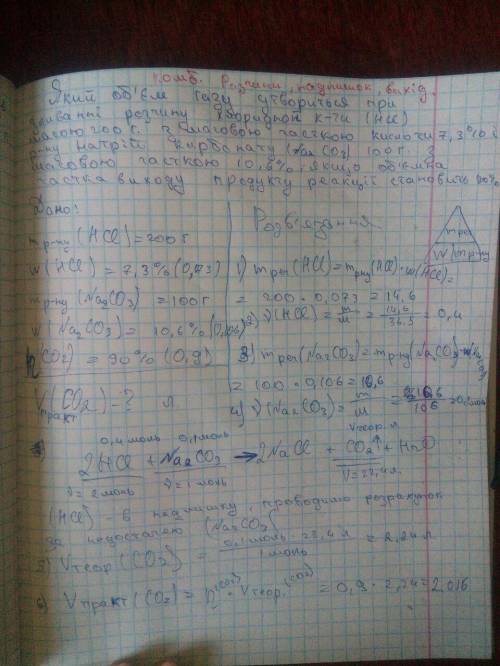 комб. Розчини, надлишок, вихід.
Який об'єм газу утвориться при
розчину хлоридної к-ти (HCl)
масою 200 г. з масовою часткою кислоти 7,3% і
р-ну натрій карбонату (Na2CO3) 100 г. з
масовою часткою 10,6%, якщо об'ємна
частка виходу продукту реакції становить 90%
Дано:
m р-ну (HCl) = 200 г
W (HCl) = 7,3% (0,073)
m р-ну (Na2CO3) = 100 г
W (Na2CO3) = 10,6% (0,106)
η(CO2) = 90% (0,9)
V практ (CO2) - ? л
Розв'язання
m реч
W m р-ну
1) m реч (HCl) = m р-ну (HCl) · W (HCl) =
= 200 · 0,073 = 14,6
2) ν(HCl) = m/M = 14,6/36,5 = 0,4
3) m реч (Na2CO3) = m р-ну (Na2CO3)
= 100 · 0,106 = 10,6
4) ν(Na2CO3) = m/M = 10,6/106 = 0,1моль
0,4 моль 0,1 моль V теор. л
2HCl + Na2CO3 → 2NaCl + CO2↑ + H2O
ν = 2 моль ν = 1 моль V = 22,4 л
(HCl) - в надлишку, проводимо розрахунок
за недостачею (Na2CO3)
5) V теор (CO2) = 0,1 моль · 22,4 л / 1 моль = 2,24 л
6) V практ (CO2) = η(CO2) · V теор. (CO2) = 0,9 · 2,24 = 2,016